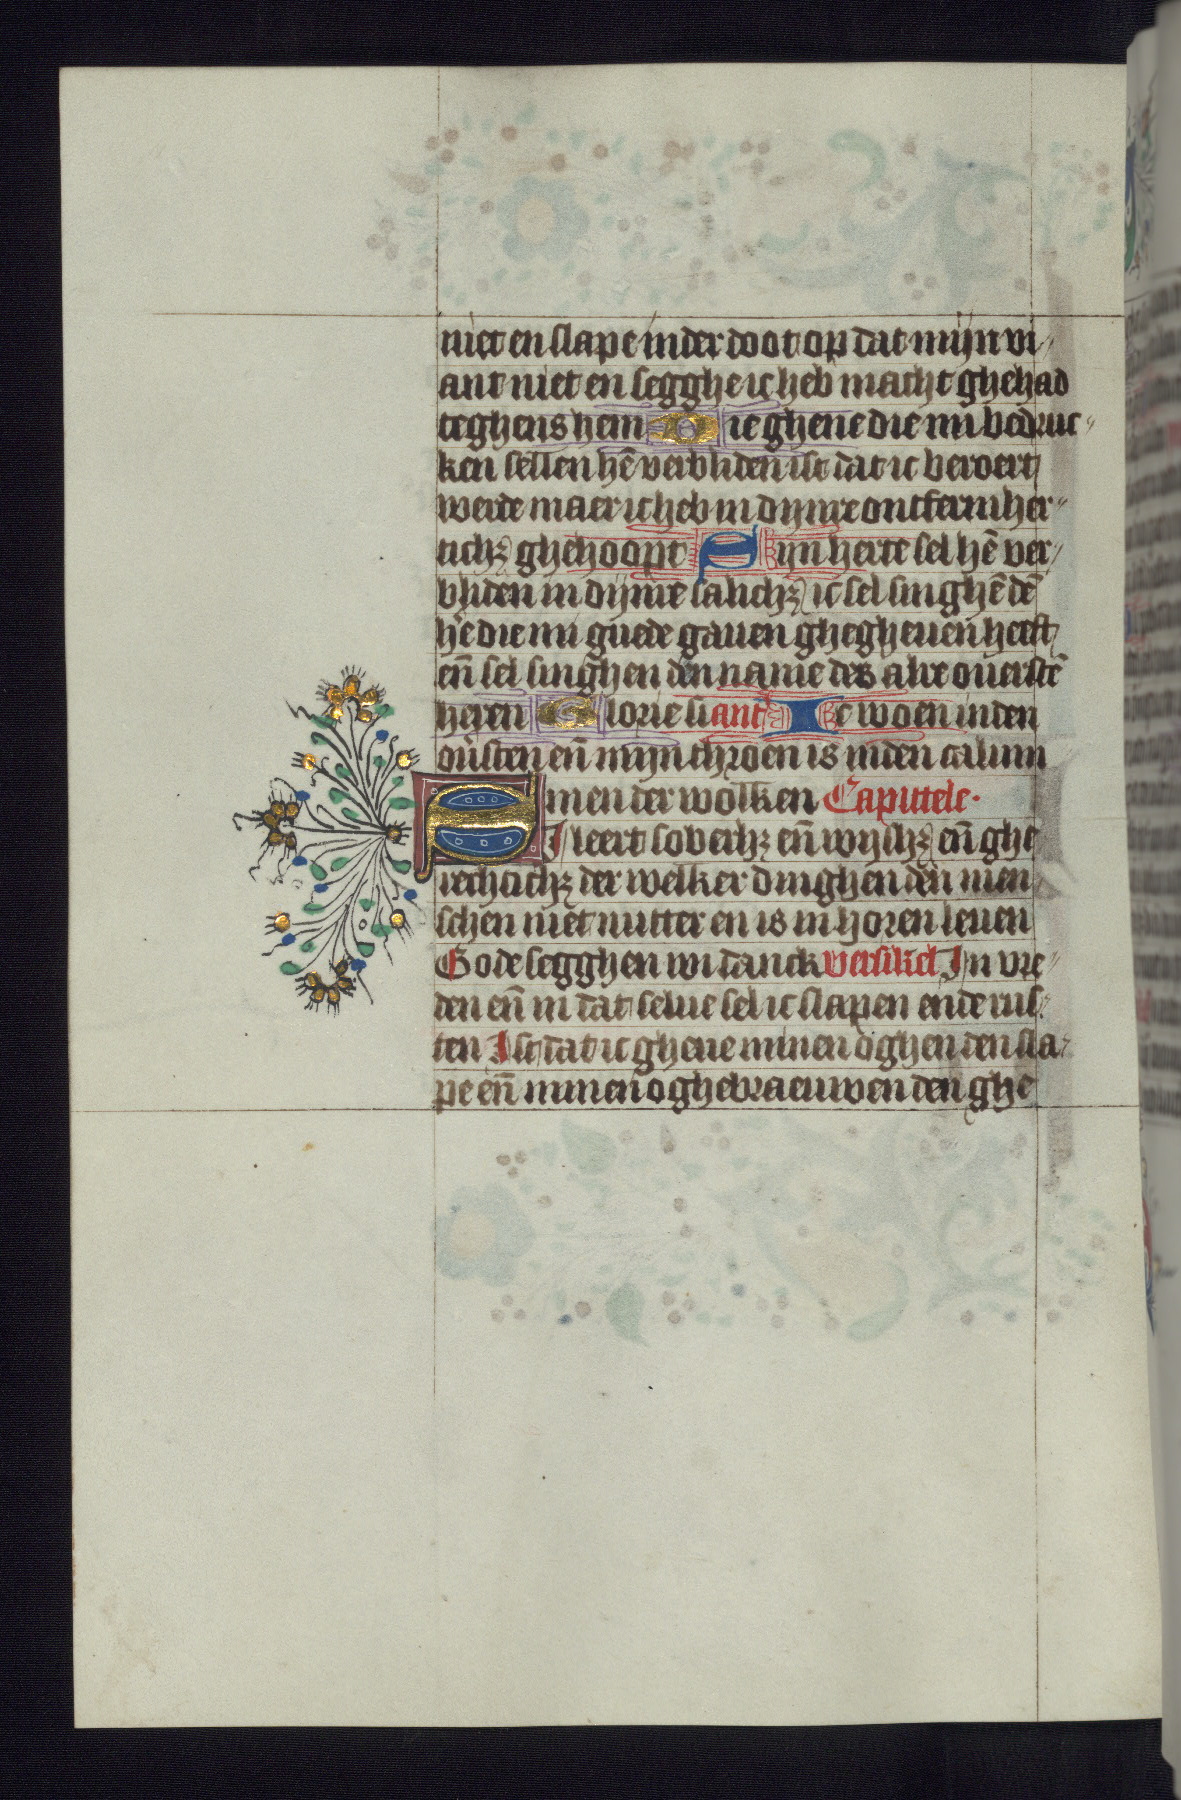 niet en slape inder doot op dat mijn vi⸗
ant niet en segghe ic heb macht ghehad
teghens hem Die ghene die mi bedruc⸗
ken sellen hē verbliden ist dat ic beroert
werde maer ic heb in dijnre ontfermher⸗
tichꝫ ghehoopt Mijn herte sel hē ver⸗
bliden in dijnre salichꝫ ic sel singhē dē
hē die mi guede gauen ghegheuen heeft
eñ sel singhen den name des alre ouerstē
heren Glorie si ant Ic woen inden
ouſten eñ mijn throen is inden calum
men der wolken Capittele.
Si leert soberhꝫ eñ wijshꝫ eñ ghe
rechtichꝫ der welker dinghen den men
schen niet nutter en is in horen leuen
Gode segghen wi danck versikel In vre⸗
den eñ in dat selue sel ic slapen ende rus⸗
ten Ist dat ic gheue minen oghen den sla⸗
pe eñ minen oghebraeuwen den ghe